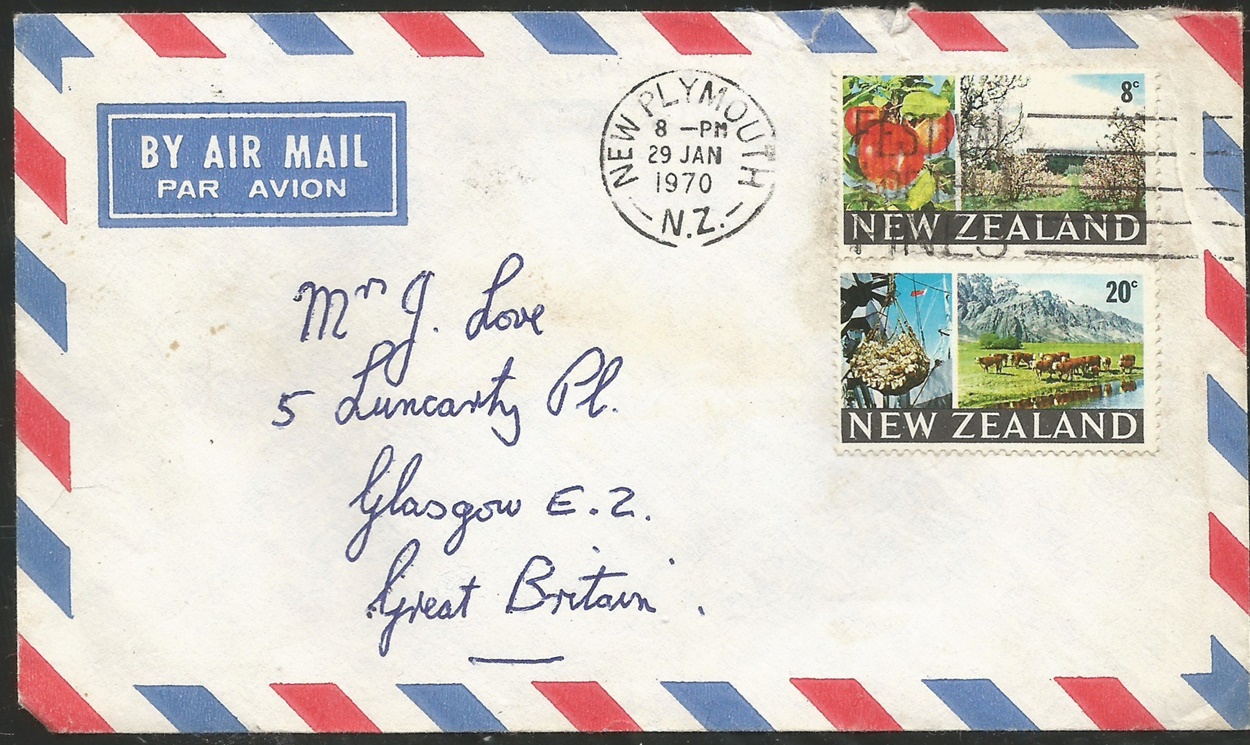 BY AIR MAIL
PAR AVION
NEW PLYMOUTH
8 -PM
29 JAN
1970
N.Z.
8c
FESTIVAL
OF THE
PINES
NEW ZEALAND
20c
NEW ZEALAND
Mr J. Love
5 Luncarty Pl.
Glasgow E.2.
Great Britain.